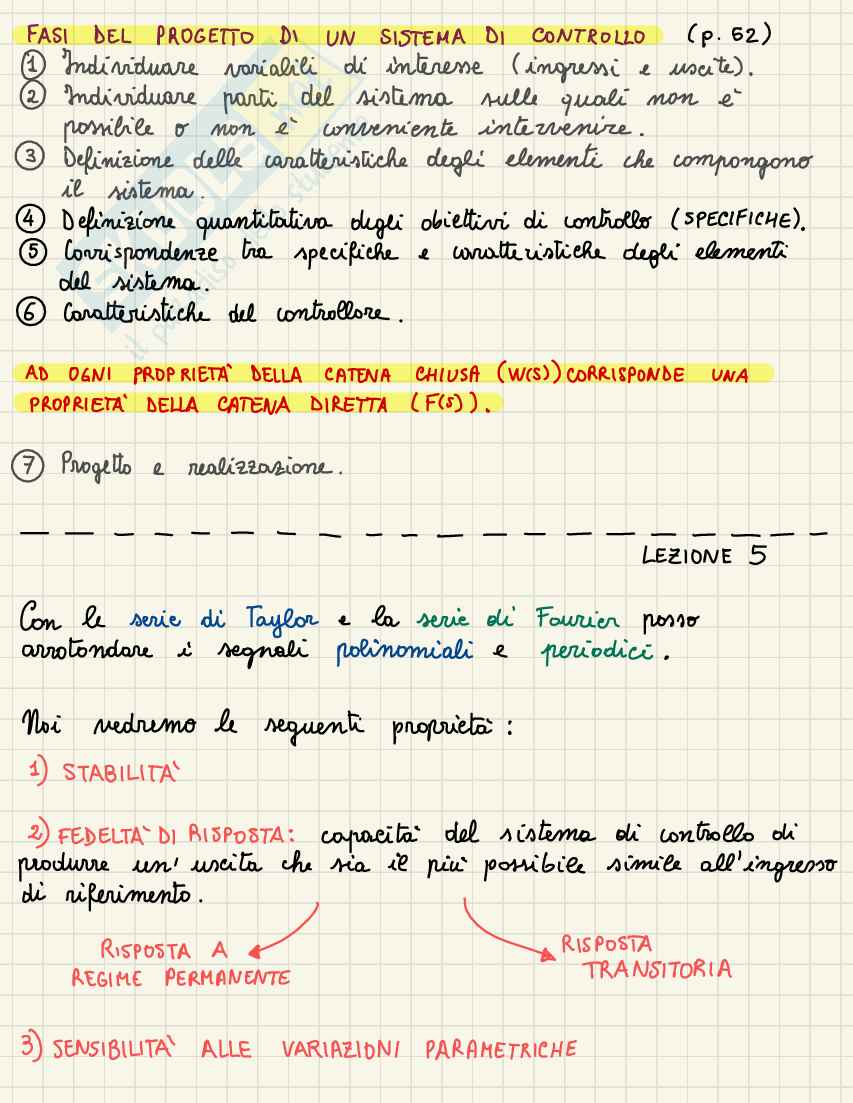 FASI DEL PROGETTO DI UN SISTEMA DI CONTROLLO (p. 52)
① Individuare variabili di interesse (ingressi e uscite).
② Individuare parti del sistema sulle quali non è
possibile o non è conveniente intervenire.
③ Definizione delle caratteristiche degli elementi che compongono
il sistema.
④ Definizione quantitativa degli obiettivi di controllo (SPECIFICHE).
⑤ Corrispondenze tra specifiche e caratteristiche degli elementi
del sistema.
⑥ Caratteristiche del controllore.
AD OGNI PROPRIETÀ DELLA CATENA CHIUSA (W(S)) CORRISPONDE UNA
PROPRIETÀ DELLA CATENA DIRETTA (F(S)).
⑦ Progetto e realizzazione.
LEZIONE 5
Con le serie di Taylor e la serie di Fourier posso
arrotondare i segnali polinomiali e periodici.
Noi vedremo le seguenti proprietà:
1) STABILITÀ
2) FEDELTÀ DI RISPOSTA: capacità del sistema di controllo di
produrre un' uscita che sia il più possibile simile all'ingresso
di riferimento.
RISPOSTA A
REGIME PERMANENTE
RISPOSTA
TRANSITORIA
3) SENSIBILITÀ ALLE VARIAZIONI PARAMETRICHE